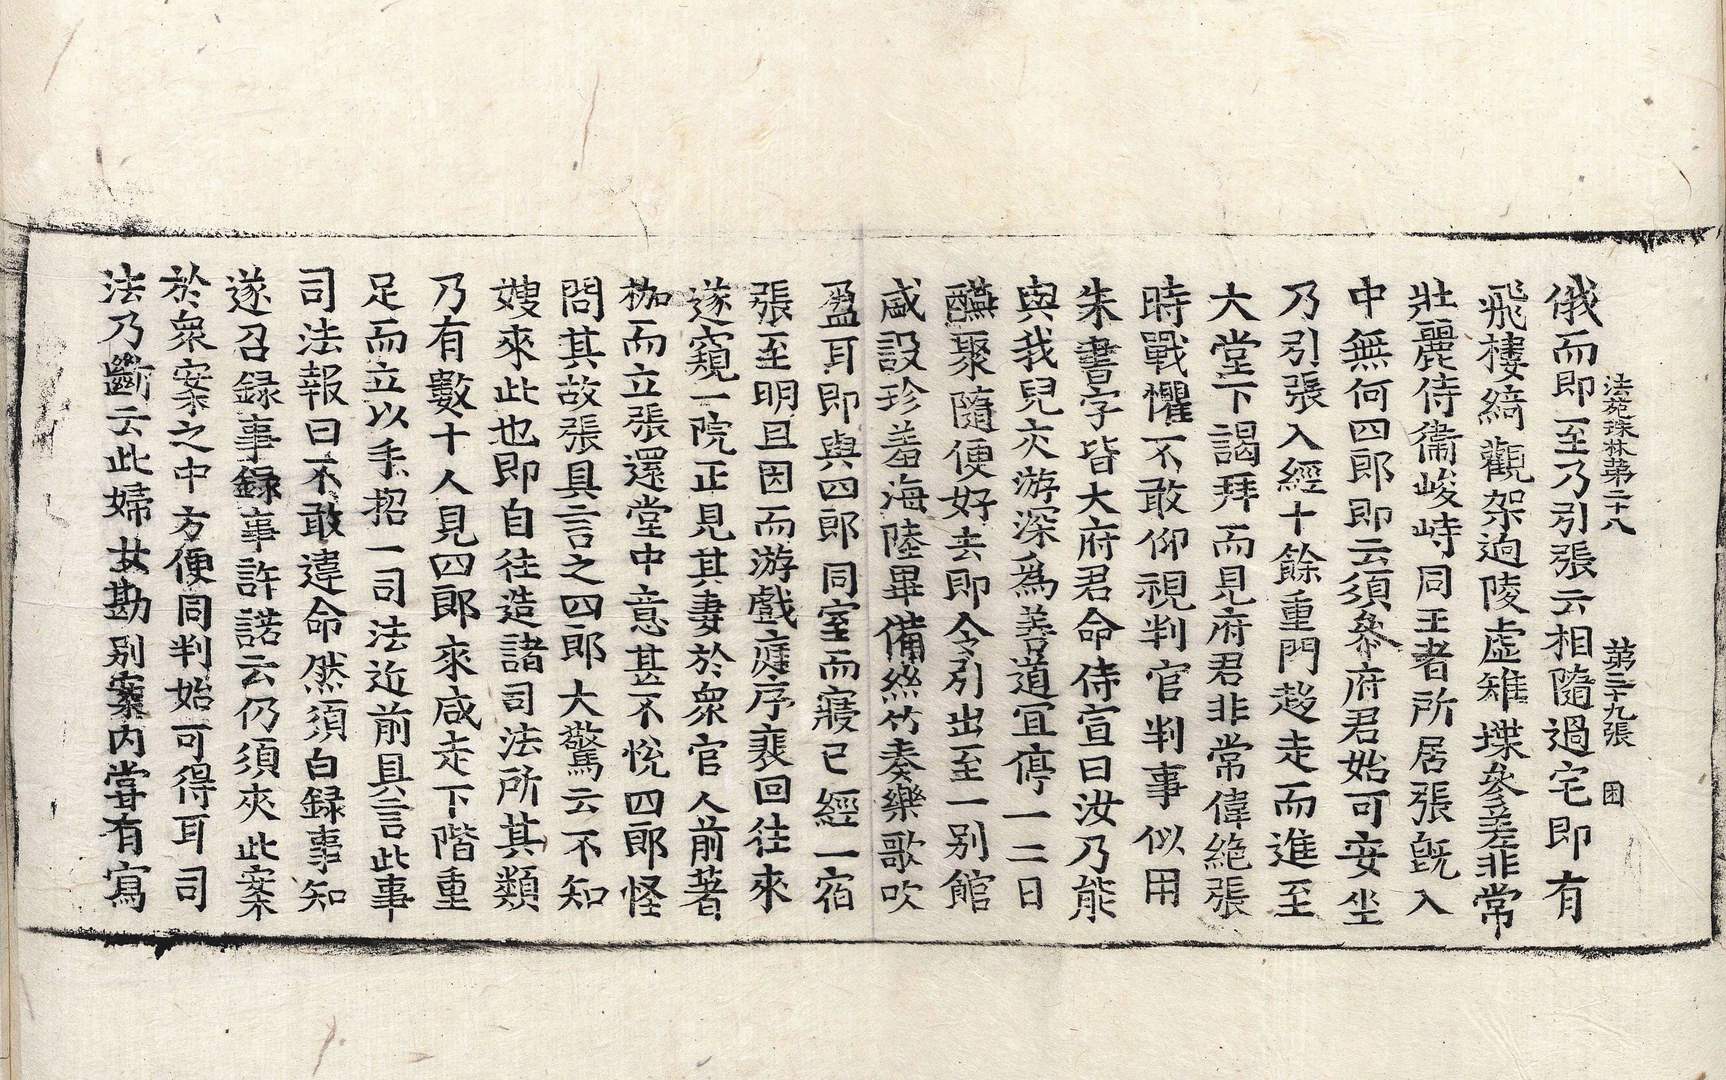 法苑珠林第二十八 第三十九張 困
俄而即至乃引張云相隨過宅即有
飛樓綺觀架迥陵虛雉堞參差非常
壯麗侍衞峻峙同王者所居張旣入
中無何四郎即云須叅府君始可安坐
乃引張入經十餘重門趍走而進至
大堂下謁拜而見府君非常偉絶張
時戰懼不敢仰視判官判事似用
朱書字皆大府君命侍宣曰汝乃能
與我兒交游深爲善道宜停一二日
醼聚隨便好去即令引出至一別館
咸設珍羞海陸畢備絲竹奏樂歌吹
盈耳即與四郎同室而寢已經一宿
張至明旦因而游戲庭序裵回往來
遂窺一院正見其妻於衆官人前著
枷而立張還堂中意甚不悅四郎怪
問其故張具言之四郎大驚云不知
嫂來此也即自往造諸司法所其類
乃有數十人見四郎來咸走下階重
足而立以手招一司法近前具言此事
司法報曰不敢違命然須白録事知
遂召録事録事許諾云仍須夾此案
於衆案之中方便同判始可得耳司
法乃斷云此婦女勘別案內嘗有寫